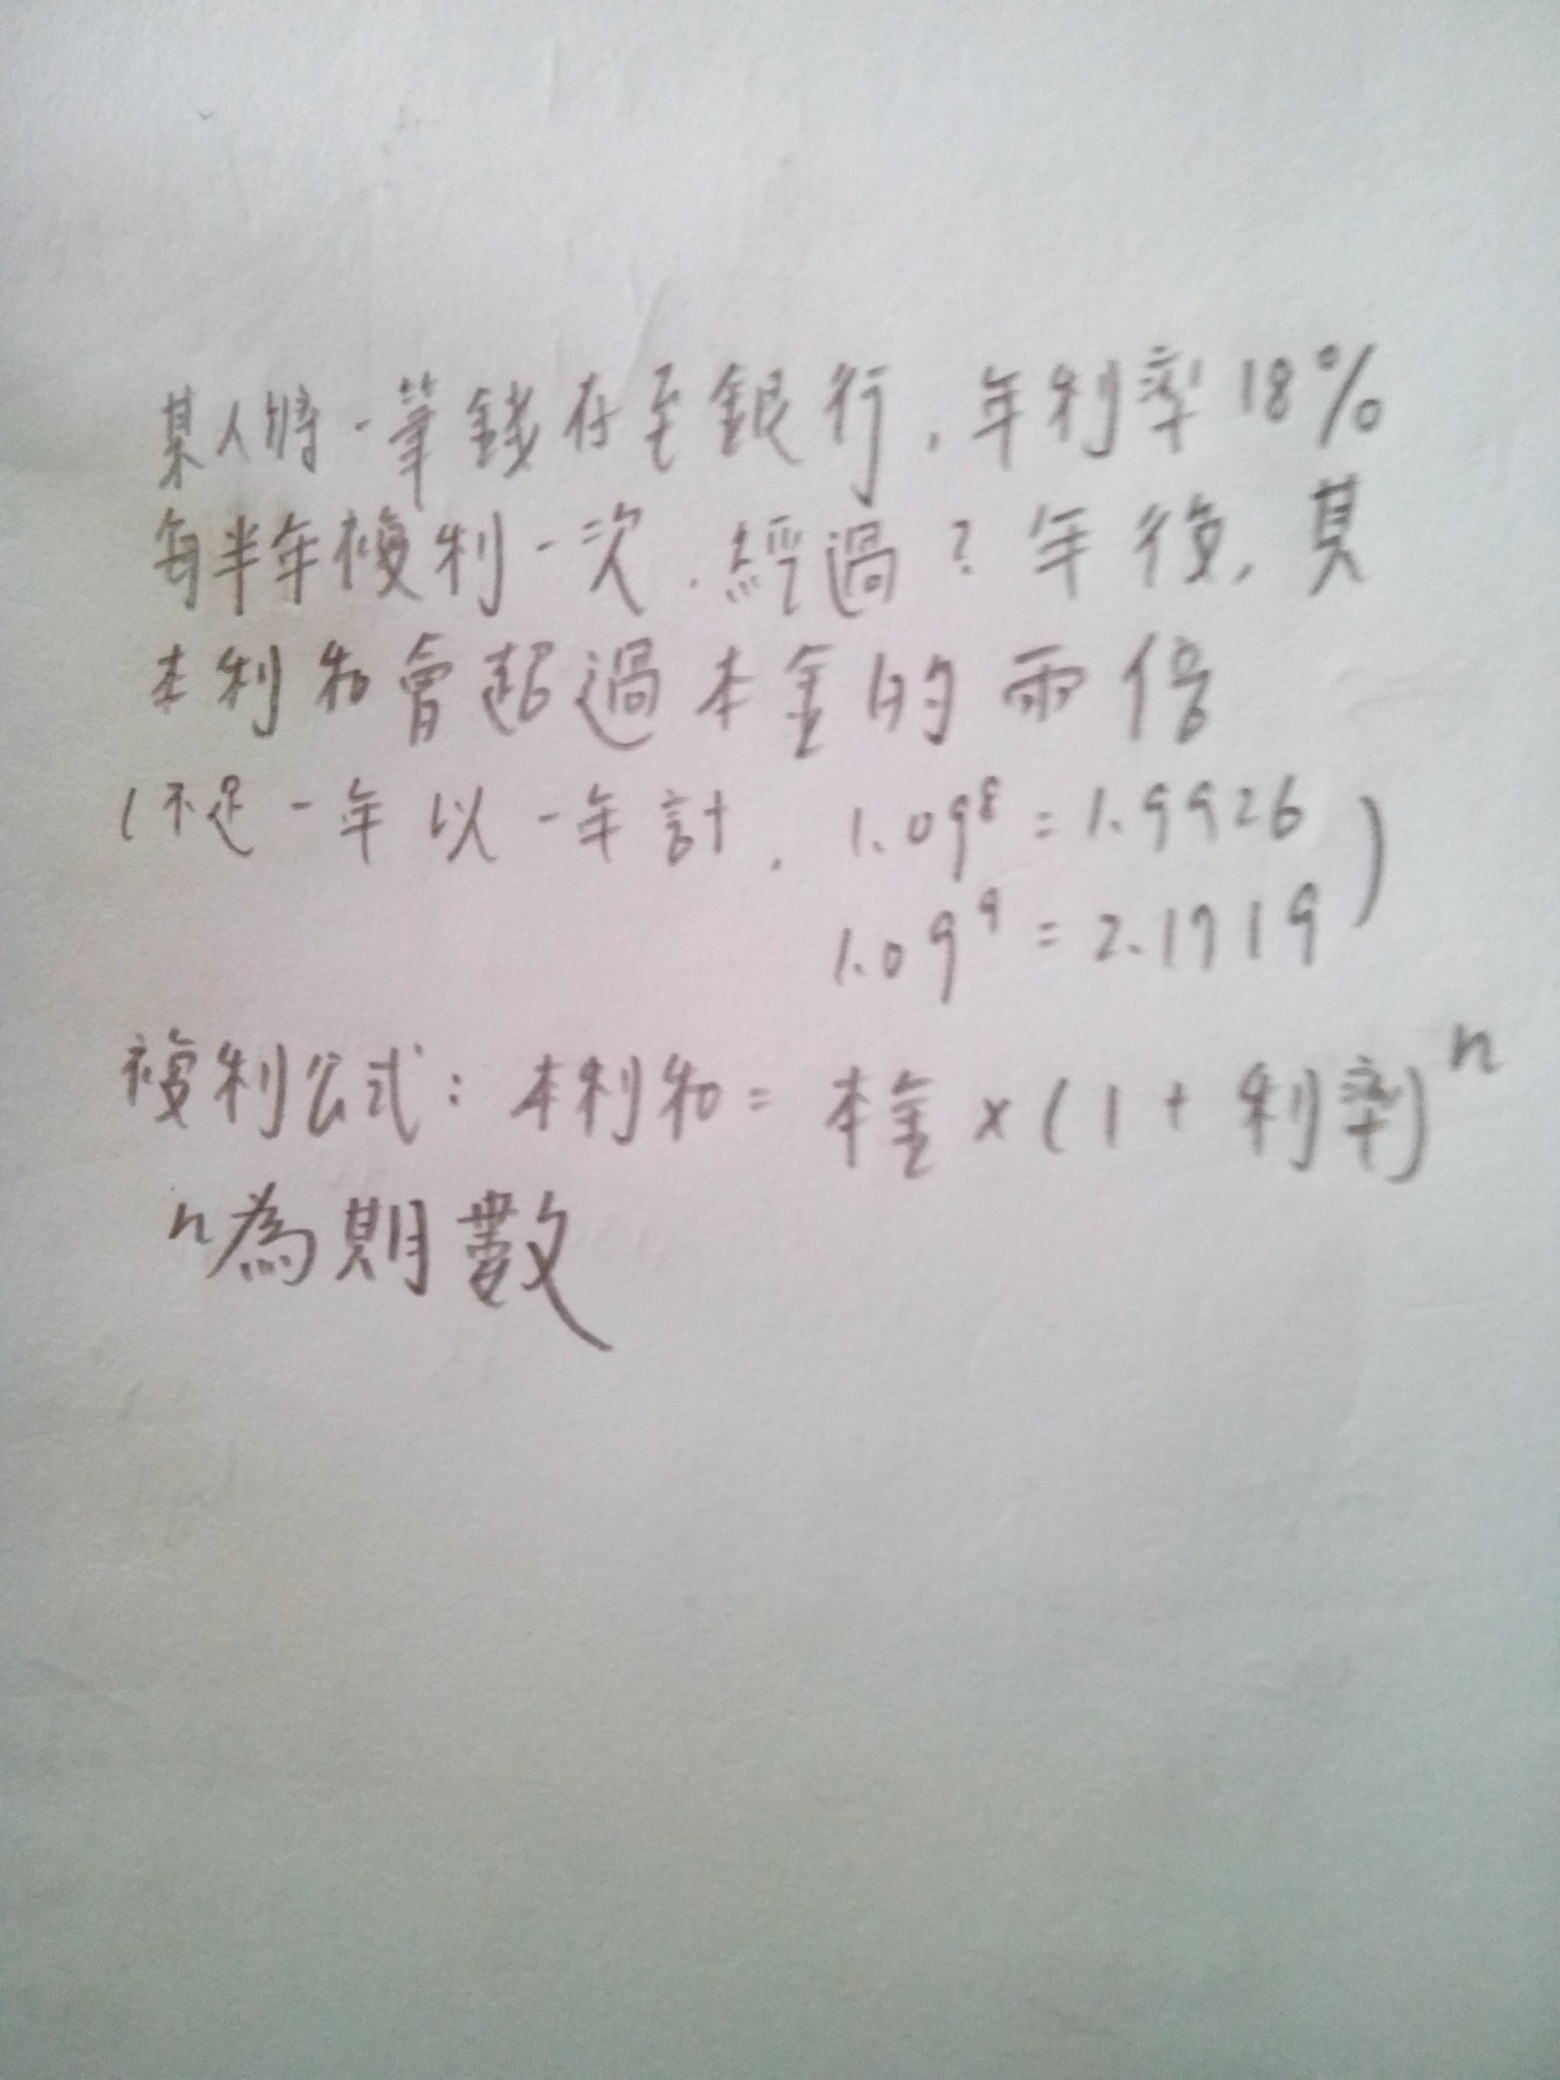 某人將一筆錢存至銀行,年利率18%
每半年複利一次.經過?年後,其
本利和會超過本金的兩倍
(不足一年以一年計. 1.09⁸=1.9926)
1.09⁹=2.1719
複利公式:本利和=本金×(1+利率)ⁿ
n為期數